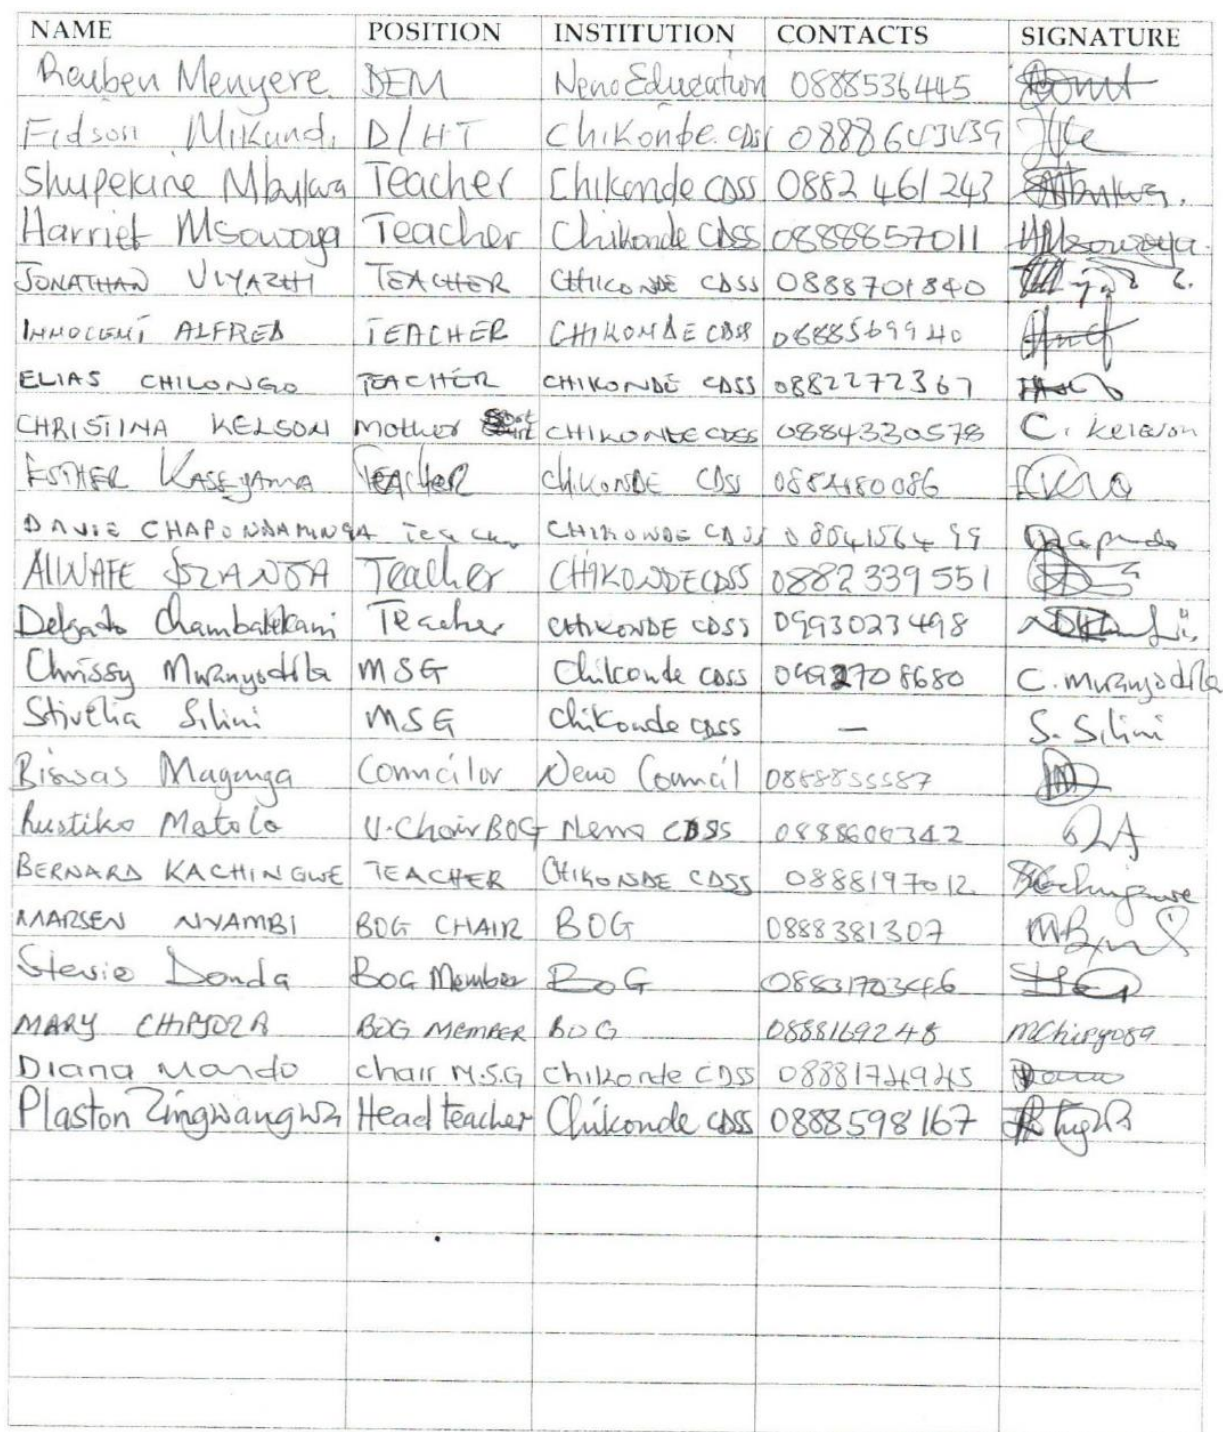 NAME POSITION INSTITUTION CONTACTS SIGNATURE
Reuben Menyere DEM Neno Education 0888536445
Fidson Mikundi D/HT Chikonde CDSS 0888643439
Shupekire Mbukwa Teacher Chikonde CDSS 0882 461 243
Harriet Msowoya Teacher Chikonde CDSS 08888857011 HMsowoya.
JONATHAN VIYAZHI TEACHER CHIKONDE CDSS 0888701840
INNOCENT ALFRED TEACHER CHIKONDE CDSS 0888569940
ELIAS CHILONGO TEACHER CHIKONDE CDSS 0882272367
CHRISTINA KELSON Mother CHIKONDE CDSS 0884330578 C. kelson
ESTHER KASEYAMA TEACHER CHIKONDE CDSS
DAVIE CHAPONDAMINGA Teacher CHIKONDE CDSS
Teacher CHIKONDE CDSS 0882 339 551
Delgado Teacher CHIKONDE CDSS 0993023498
Chrissy Mwanyodila MSG Chikonde CDSS C. mwanyodila
Stivelia Silini MSG Chikonde CDSS — S. Silini
Biswas Maganga Councilor Neno Council
Rustiko Matola V. Chair BOG Neno CDSS 0888600342
BERNARD KACHINGWE TEACHER CHIKONDE CDSS 0888197012
MARSEN NYAMBI BOG CHAIR BOG 0888381307
Stevie Donda BOG Member BOG 08831703446
MARY CHIPYOZA BOG MEMBER BOG 0888169248 MChipyoza
Diana Mando chair M.S.G Chikonde CDSS 0888174945
Plaston Zingwangwa Head teacher Chikonde CDSS 0888598167